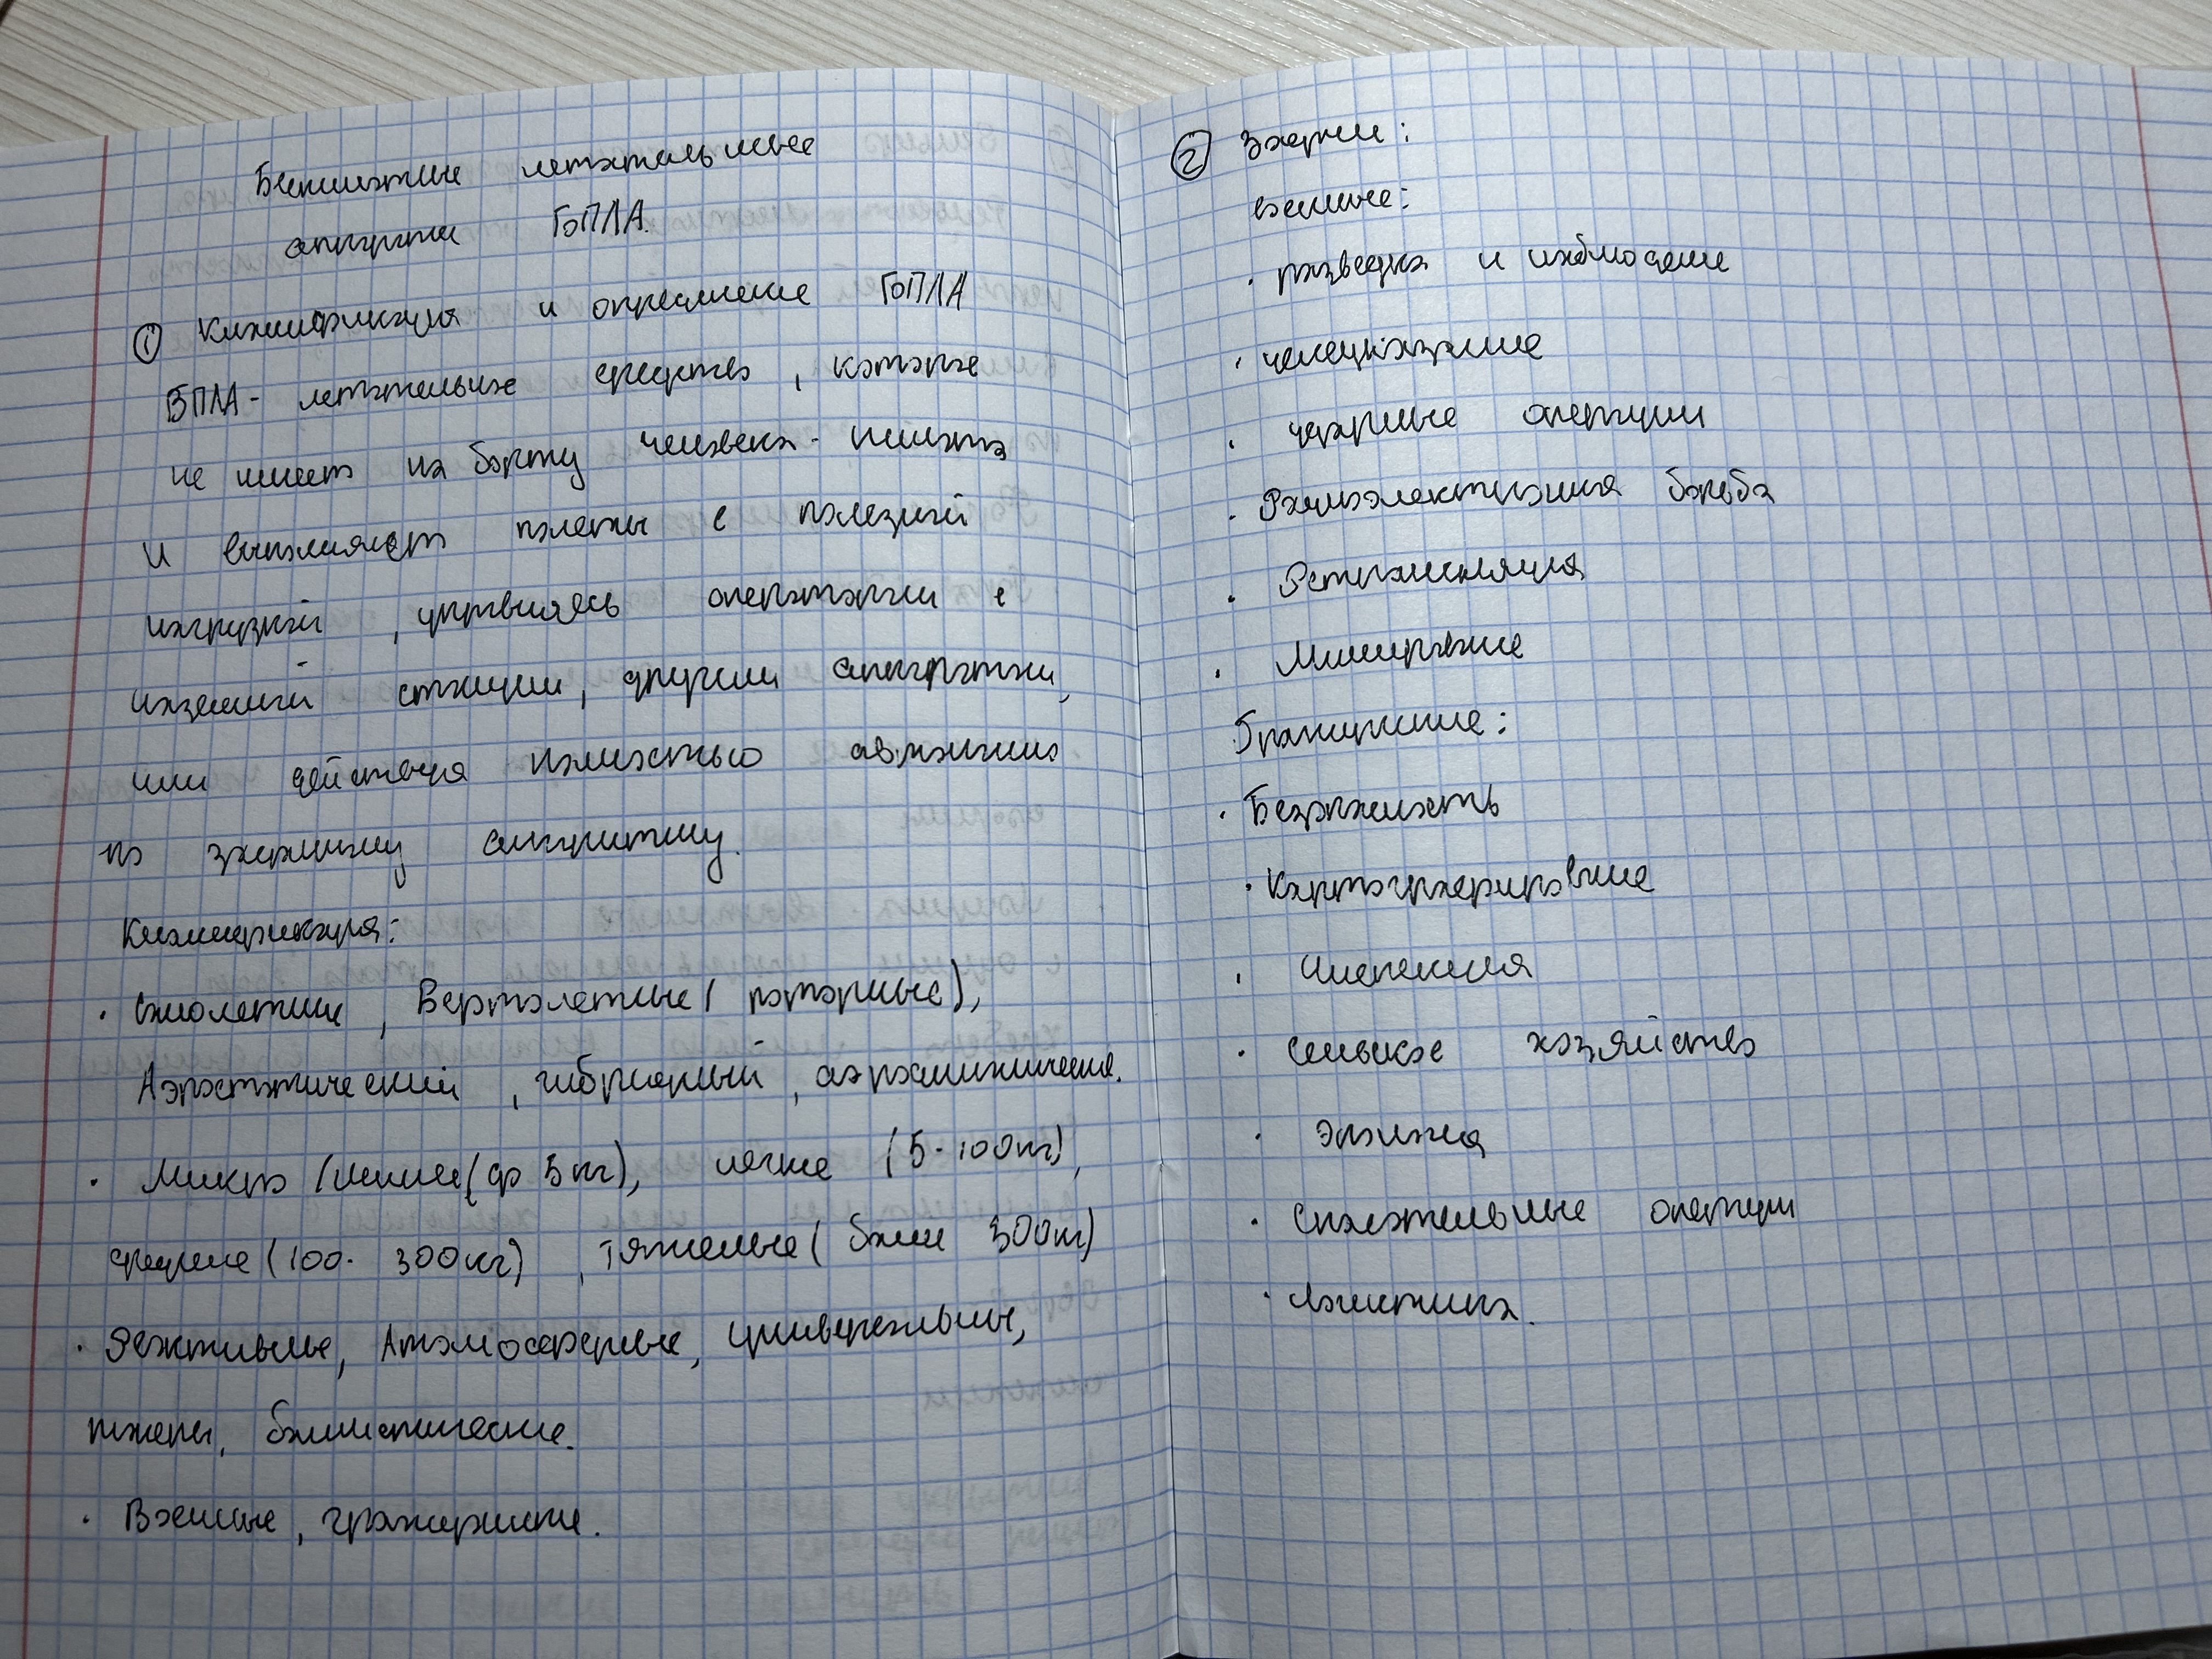 Беспилотные летательные
аппараты БПЛА.
① Классификация и определение БПЛА
БПЛА - летательное средство, которое
не имеет на борту человека - пилота
и выполняет полеты с полезной
нагрузкой, управляясь оператором с
наземной станции, другими аппаратами,
или действуя полностью автономно
по заданному алгоритму.
Классификация:
· Самолетные, Вертолетные (роторные),
Аэростатический, гибридный, аэродинамические.
· Микро (мини (до 5 кг), легкие (5 - 100 кг),
средние (100 - 300 кг), тяжелые (более 300 кг)
· Реактивные, Атмосферные, универсальные,
ракеты, баллистические.
· Военные, гражданские.
② Задачи:
военные:
· разведка и наблюдение
· целеуказание
· ударные операции
· Радиоэлектронная борьба
· Ретрансляция
· Минирование
Гражданские:
· Безопасность
· Картографирование
· инспекция
· сельское хозяйство
· спасательные операции
· логистика.